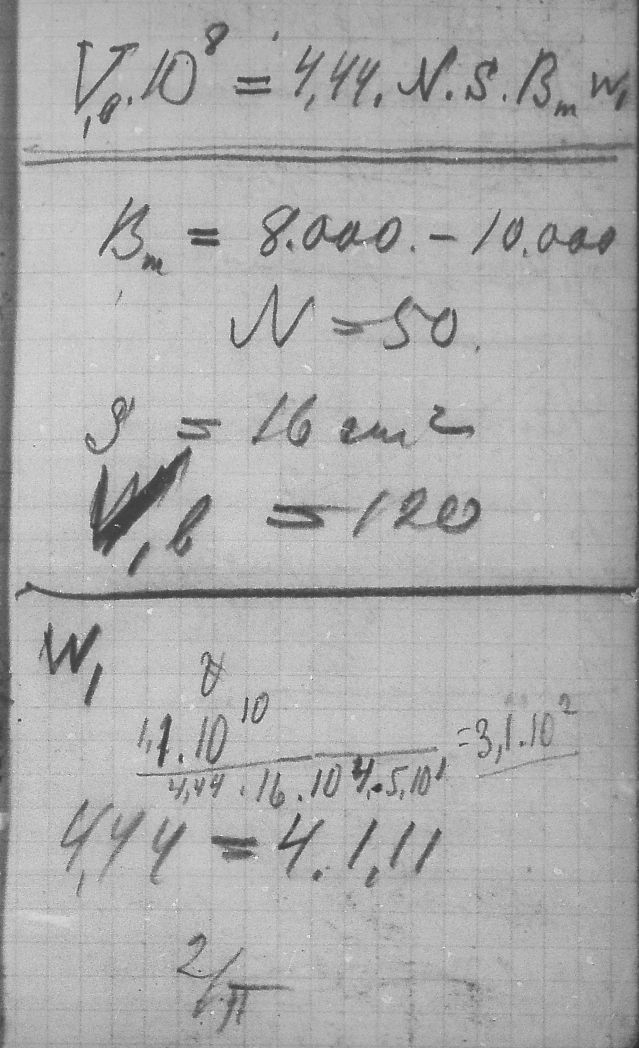 V₁в.10⁸ = 4,44. N.S.Bₘ w₁
Bₘ = 8.000.-10.000
N = 50.
S = 16 cm²
V₁в = 120
W₁
1,1.10¹⁰ / 4,44.16.10⁴.5,10¹ = 3,1.10²
4,44 = 4.1,11
2/π